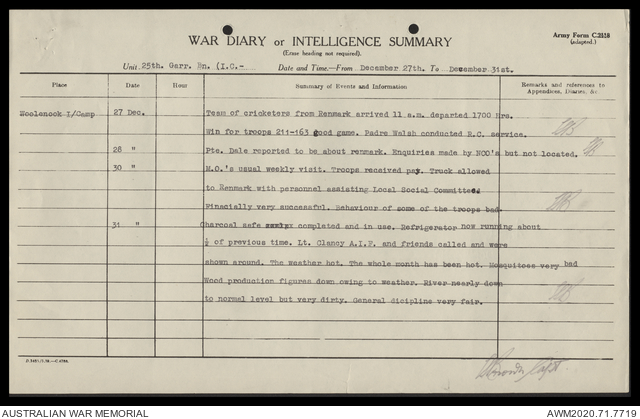 Army Form C.2118
(adapted.)
WAR DIARY or INTELLIGENCE SUMMARY
(Erase heading not required).
Unit 25th. Garr. Bn. (I.C.- Date and Time.—From December 27th. To December 31st.
Place Date Hour Summary of Events and Information Remarks and references to
Appendices, Diaries, &c.
Woolenook I/Camp 27 Dec. Team of cricketers from Renmark arrived 11 a.m. departed 1700 Hrs.
Win for troops 211-163 good game. Padre Walsh conducted R.C. service.
28 " Pte. Dale reported to be about renmark. Enquiries made by NCO's but not located.
30 " M.O.'s usual weekly visit. Troops received pay. Truck allowed
to Renmark with personnel assisting Local Social Committee.
Finacially very successful. Behaviour of some of the troops bad.
31 " Charcoal safe completed and in use. Refrigerator now running about
½ of previous time. Lt. Clancy A.I.F. and friends called and were
shown around. The weather hot. The whole month has been hot. Mosquitoes very bad
Wood production figures down owing to weather. River nearly down
to normal level but very dirty. General dicipline very fair.
Capt.
AUSTRALIAN WAR MEMORIAL AWM2020.71.7719